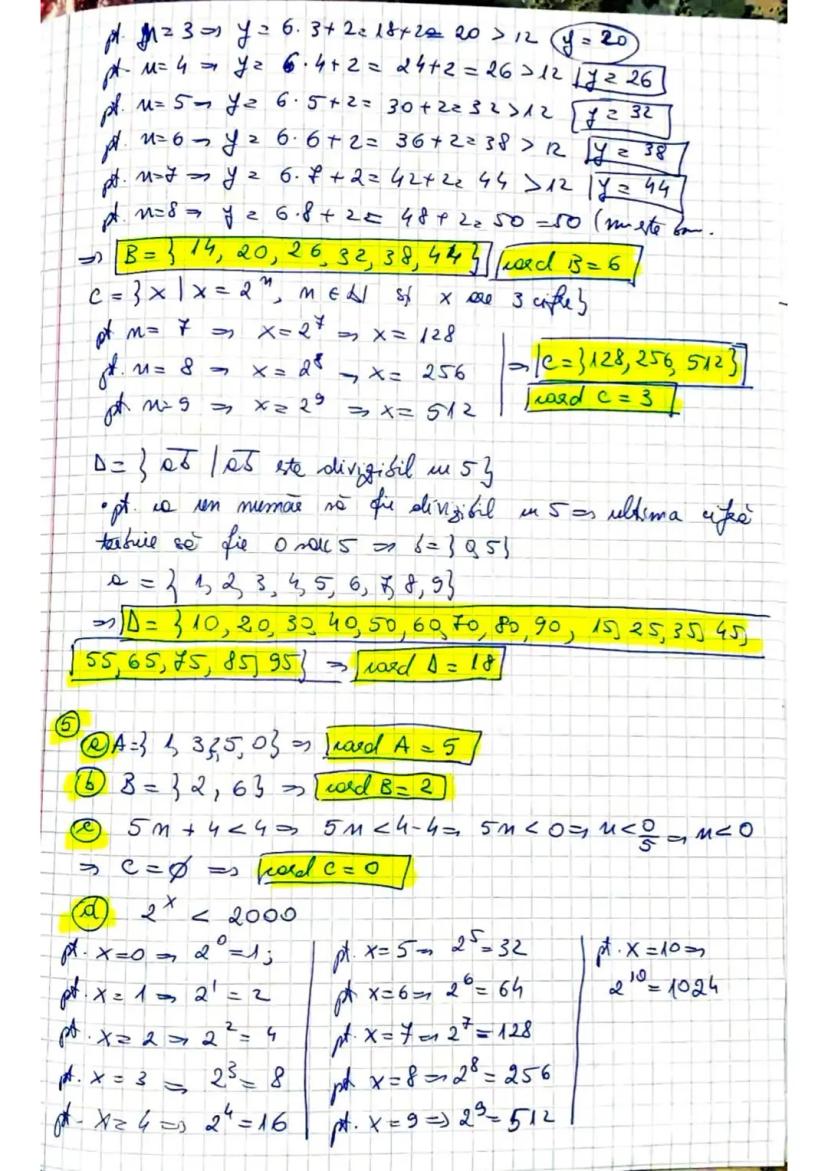 pt. n=3 => y = 6·3+2=18+2= 20 > 12 y=20
pt. n=4 => y= 6·4+2 = 24+2=26>12 y=26
pt. n=5 => y= 6·5+2= 30+2=32>12 y=32
pt. n=6 => y= 6·6+2= 36+2=38 > 12 y=38
pt. n=7 => y= 6·7+2=42+2= 44 >12 y=44
pt. n=8 => y= 6·8+2= 48+2=50 =50 (nu este
=> B={ 14, 20, 26, 32, 38, 44} card B=6
C={x | x=2ⁿ, n∈N și x are 3 cifre}
pt n= 7 => x=2⁷ => x= 128
pt. n= 8 => x=2⁸ => x= 256
pt. n=9 => x=2⁹ => x= 512
=> C={128, 256, 512}
card C=3
D={ ab | ab este divizibil cu 5}
• pt. ca un număr să fie divizibil cu 5 => ultima cifră
trebuie să fie 0 sau 5 => b={0,5}
a = { 1, 2, 3, 4, 5, 6, 7, 8, 9}
=> D={10, 20, 30, 40, 50, 60, 70, 80, 90, 15, 25, 35, 45,
55, 65, 75, 85, 95} => card D=18
5
a A={ 1, 3, 5, 0} => card A=5
b B={2, 6} => card B=2
c 5n+4<4 => 5n<4-4 => 5n<0 => n<0/5 => n<0
=> C=∅ => card C=0
d 2ˣ < 2000
pt. x=0 => 2⁰=1;
pt. x=1 => 2¹=2
pt. x=2 => 2²=4
pt. x=3 => 2³=8
pt. x=4 => 2⁴=16
pt. x=5 => 2⁵=32
pt x=6 => 2⁶=64
pt. x=7 => 2⁷=128
pt x=8 => 2⁸=256
pt. x=9 => 2⁹=512
pt. x=10 =>
2¹⁰=1024